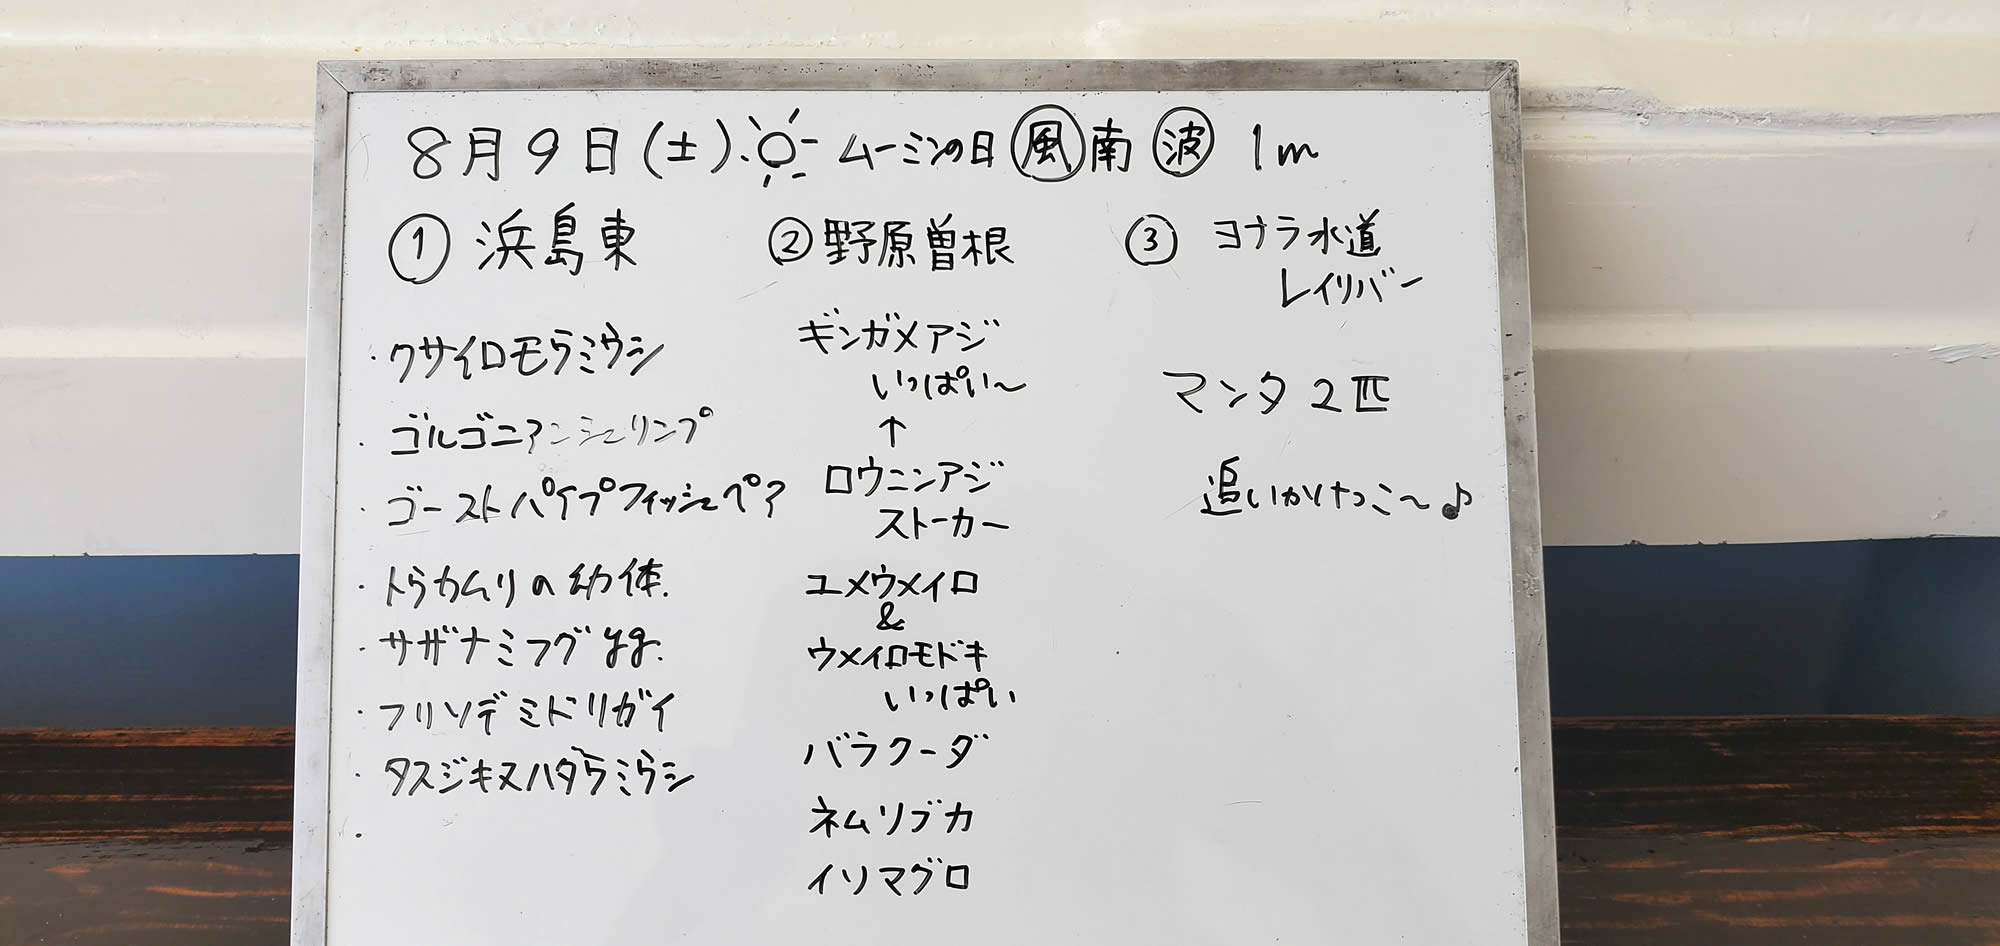 8月9日(土) ムーミンの日 風 南 波 1m
① 浜島東
・クサイロモウミウシ
・ゴルゴニアンシュリンプ
・ゴーストパイプフィッシュペア
・トウカムリの幼体.
・サザナミフグyg.
・フリソデミドリガイ
・タスジキヌハダウミウシ
・
② 野原曽根
ギンガメアジ
いっぱい〜
↑
ロウニンアジ
ストーカー
ユメウメイロ
&
ウメイロモドキ
いっぱい
バラクーダ
ネムリブカ
イソマグロ
③ ヨナラ水道
レイリバー
マンタ2匹
追いかけっこ〜♪